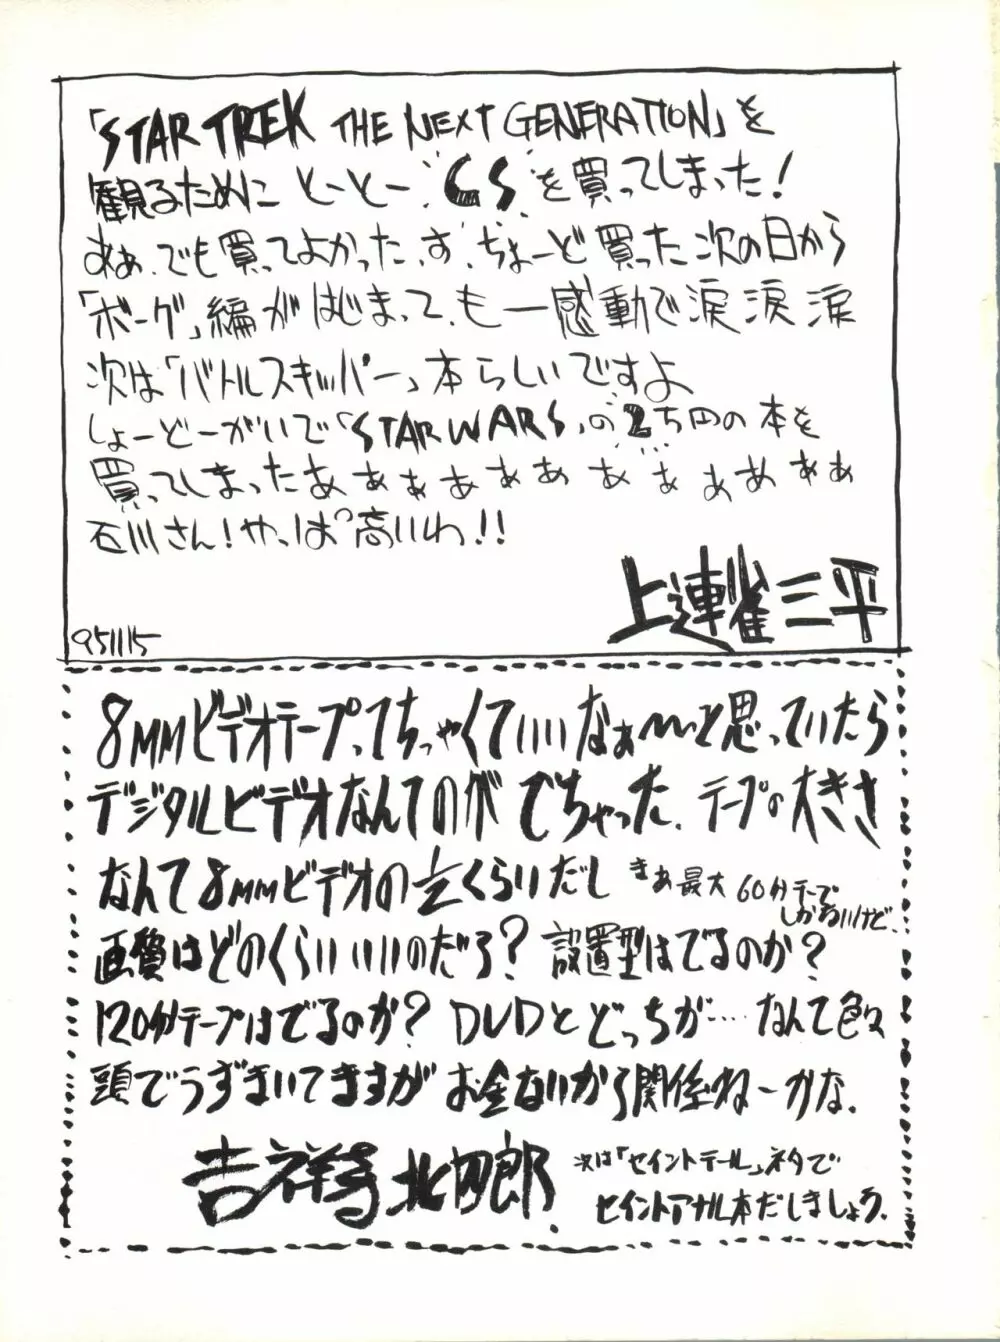 「STAR TREK THE NEXT GENERATION」を
観るために とーとー "CS" を買ってしまった！
あぁ、でも買ってよかったっす。ちょーど買った次の日から
「ボーグ」編がはじまって、も一感動で涙涙涙
次は「バトルスキッパー」本らしいですよ
しょーどーがいで「STAR WARS」の2万円の本を
買ってしまったあぁぁぁぁぁぁぁぁぁぁぁ
石川さん！やっぱ高いわ！！
上連雀三平
951115
8MMビデオテープってちっちゃくていいなぁ〜と思っていたら
デジタルビデオなんてのがでちゃった。テープの大きさ
なんて8MMビデオの½くらいだし まあ最大60分テープ
しかないけど、
画質はどのくらいいいのだろ？ 設置型はでるのか？
120分テープはでるのか？ DVDとどっちが…. なんて色々
頭でうずまいてますが お金ないから関係ねーかな。
吉祥寺北四郎.
次は「セイントテール」ネタで
セイントアナル本だしましょう。